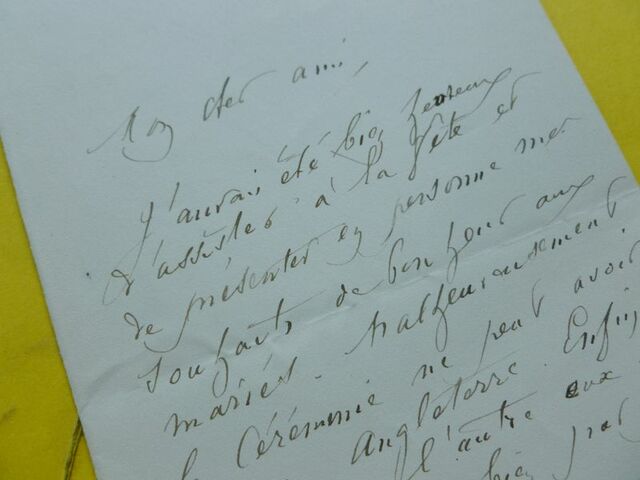 Mon cher ami,
J'aurais été bien heureux
d'assister à la fête et
de présenter en personne mes
souhaits de bonheur aux
mariés. Malheureusement
la Cérémonie ne peut avoir
Angleterre. Enfin
l'autre eux
bien par